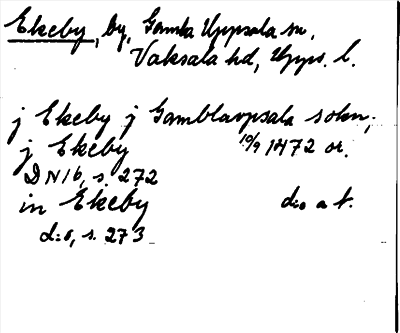 Ekeby, by, Gamla Uppsala sn,
Vaksala hd, Upps. l.
j Ekeby j Gamblavpsala sokn;
j Ekeby 10/9 1472 or.
DN 16, s. 272
in Ekeby d:o a t.
d:o, s. 273